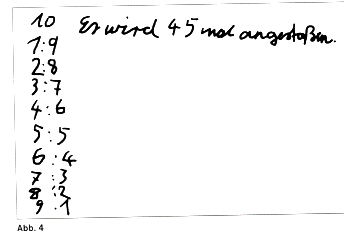 10 Es wird 45 mal angestoßen.
1:9
2:8
3:7
4:6
5:5
6:4
7:3
8:2
9:1
Abb. 4